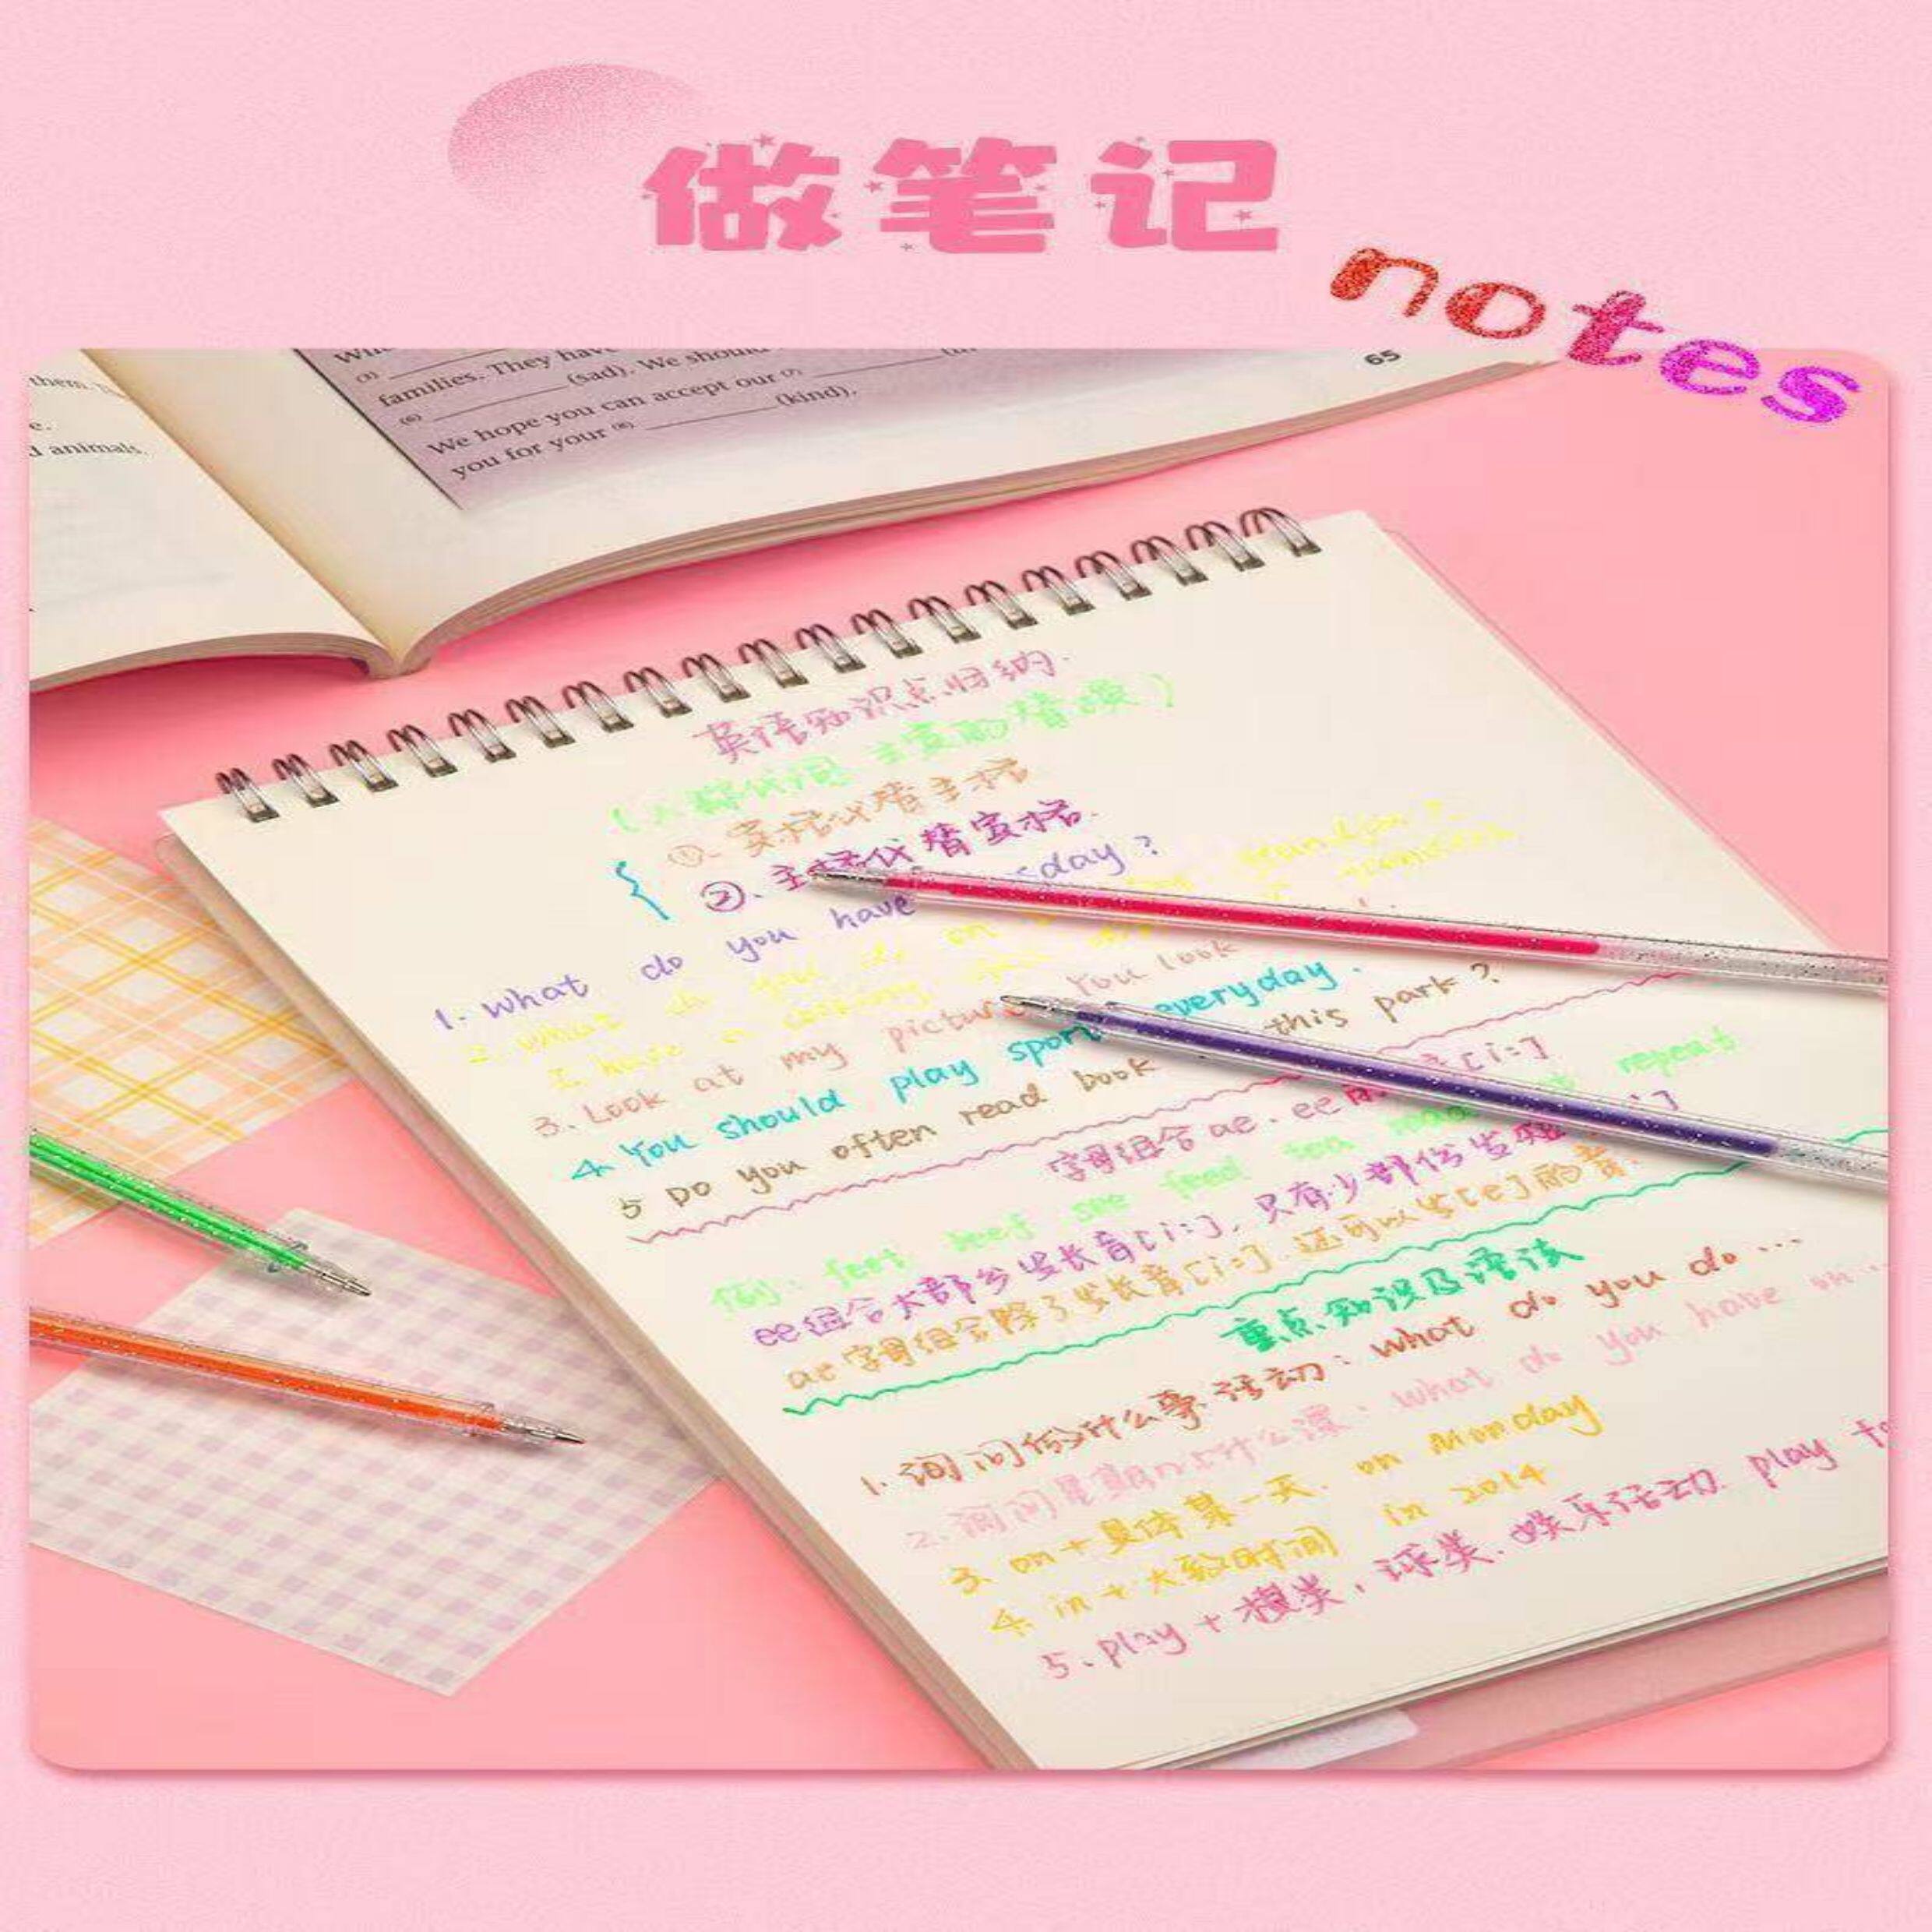 做笔记
notes
them
e.
d animals.
(3)
families. They have
(6) (sad). We should
We hope you can accept our (7)
you for your (8) (kind).
65
英语知识点归纳.
(人称代词 主宾的替换)
①. 宾格代替主格
②. 主格代替宾格.
1. What do you have sday?
2. what do you do on grandpa?
I have a cooking
3. Look at my picture You look
4 You should play sport everyday.
5 Do you often read book this park?
字母组合 ae. ee 音[i:]
例: feet beef see feed tea read repeat
ee组合大部分发长音[i:], 只有少部份发短
ae字母组合除了发长音[i:]. 还可以发[e]的音.
重点知识及语法
1. 询问做什么事.活动: what do you do...
2. 询问星期几上什么课: what do you have on...
3. on + 具体某一天. on Monday
4. in + 大致时间 in 2014
5. play + 棋类, 球类. 娱乐活动. play